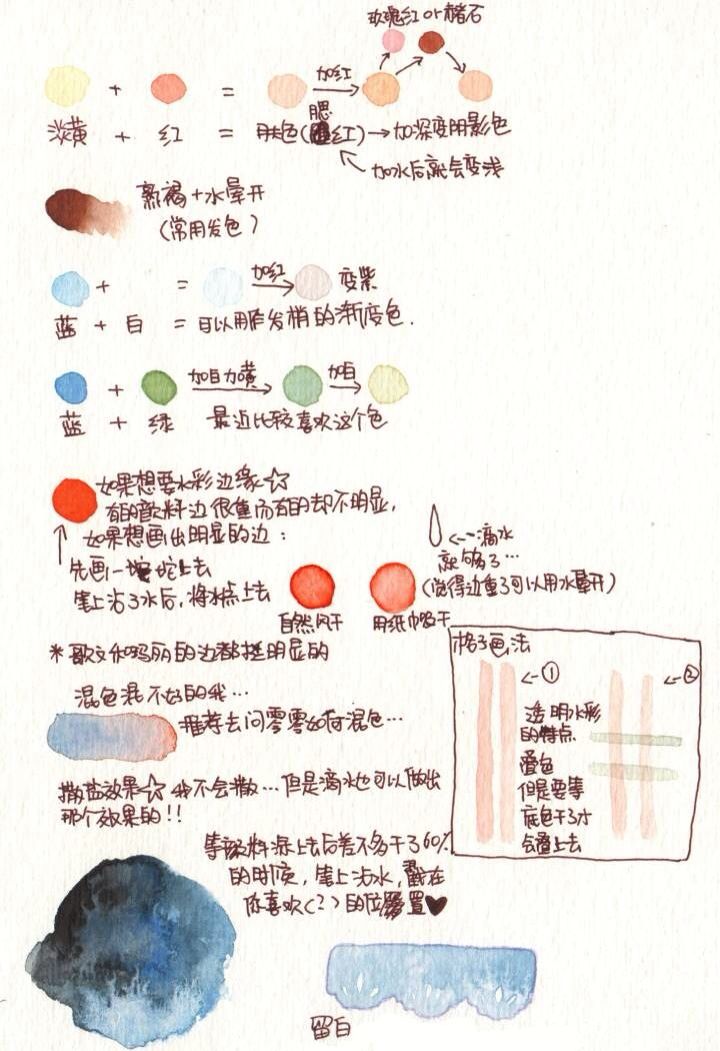 玫瑰红 or 赭石
+ = 加红
淡黄 + 红 = 肤色(腮红)→加深变阴影色
加水后就会变浅
熟褐+水晕开
(常用发色)
+ = 加红 变紫
蓝 + 白 = 可以用作发梢的渐变色.
+ 加白加黄 加白
蓝 + 绿 最近比较喜欢这个色
如果想要水彩边缘☆
有的颜料边很重而有的却不明显,
如果想画出明显的边:
先画一坨上去
笔上沾了水后,将水点上去
<--滴水
就够了…
(觉得边重了可以用水晕开)
自然风干
用纸巾吸干
*歌文和玛丽的边都挺明显的
混色混不好的我…
推荐去问零零如何混色…
格子画法
<-① <-②
透明水彩
的特点
叠色
但是要等
底色干了才
能叠上去
撒盐效果☆我不会撒…但是滴水也可以做出
那个效果的!!
等颜料涂上去后差不多干了60%
的时候,笔上沾水,戳在
你喜欢(?)的位置♥
留白